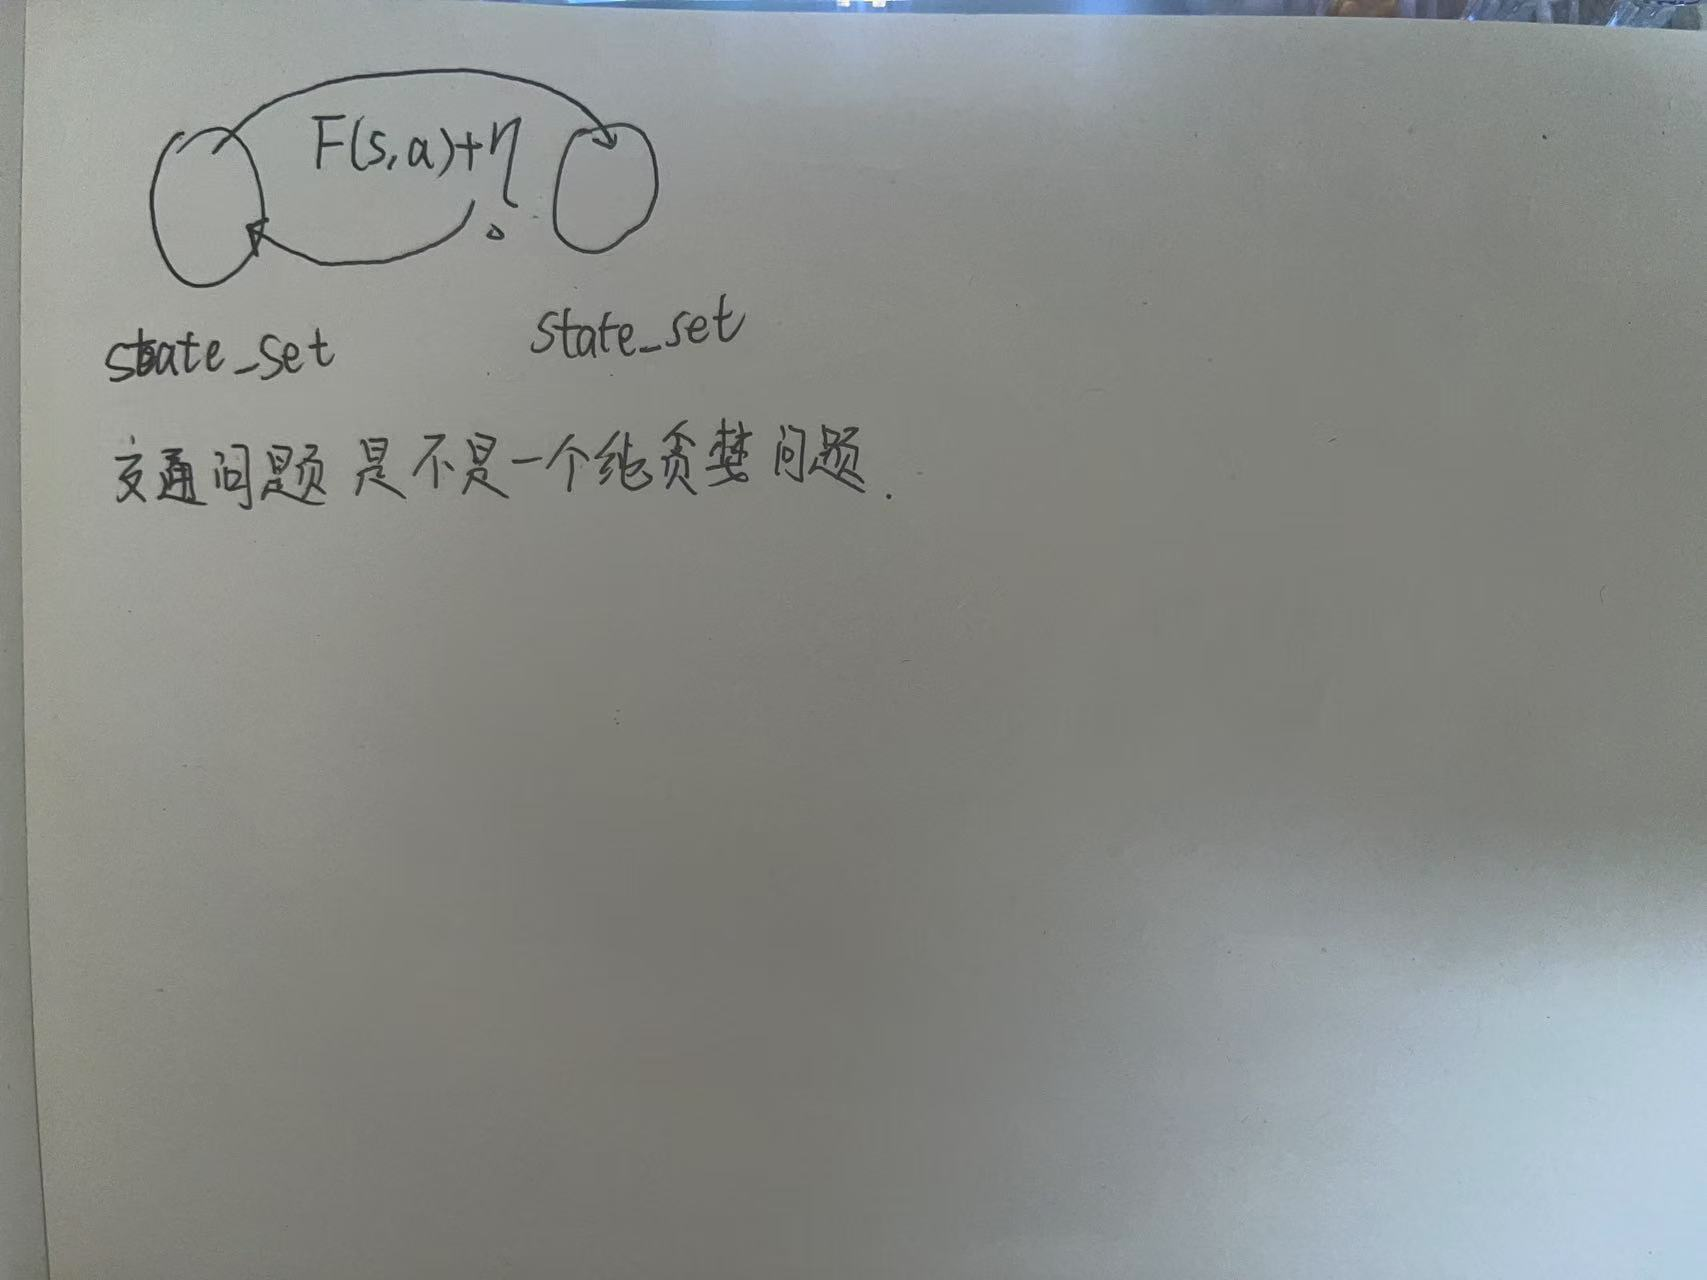 F(s,a)+η
state_set state_set
交通问题是不是一个纯贪婪问题.